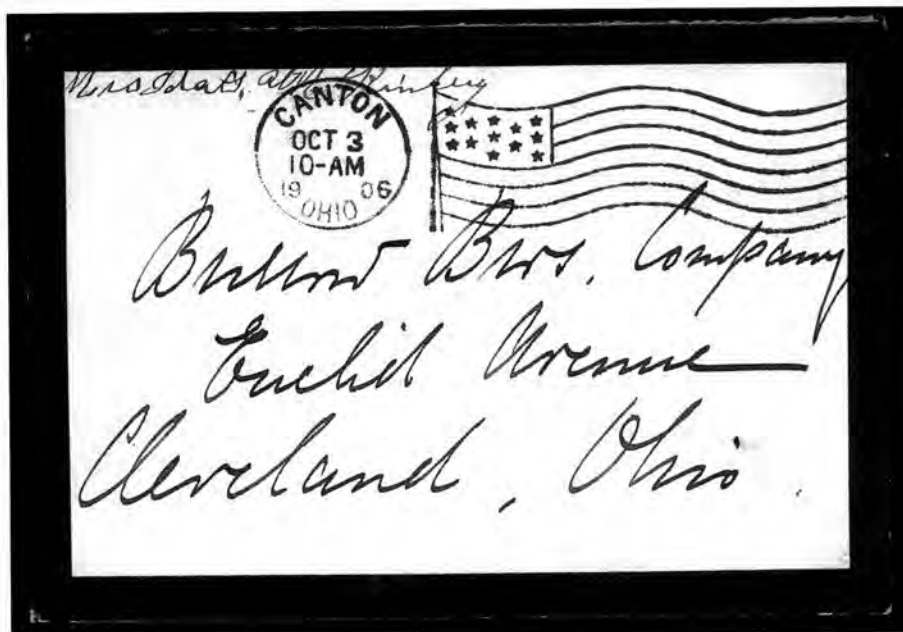 Mrs Ida S.
CANTON
OCT 3
10-AM
19 06
OHIO
Bros. Company
Euclid Avenue
Cleveland, Ohio.